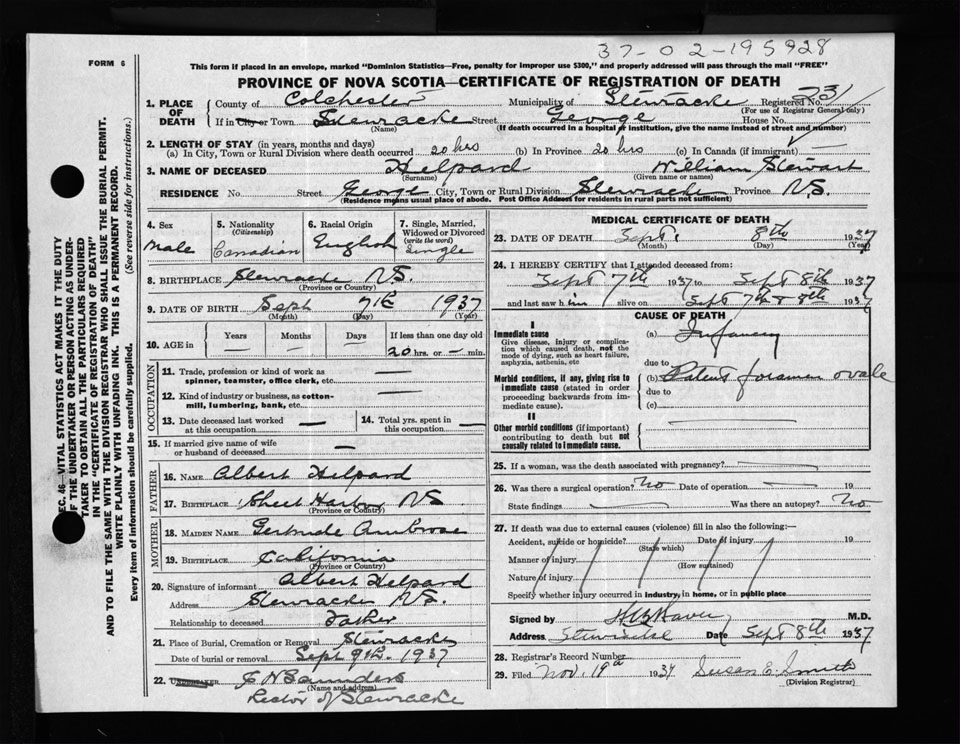 37-02-195928
FORM 6
This form if placed in an envelope, marked "Dominion Statistics—Free, penalty for improper use $300," and properly addressed will pass through the mail "FREE"
PROVINCE OF NOVA SCOTIA—CERTIFICATE OF REGISTRATION OF DEATH
SEC. 46—VITAL STATISTICS ACT MAKES IT THE DUTY
OF THE UNDERTAKER OR PERSON ACTING AS UNDER-
TAKER TO OBTAIN ALL THE PARTICULARS REQUIRED
IN THE "CERTIFICATE OF REGISTRATION OF DEATH"
AND TO FILE THE SAME WITH THE DIVISION REGISTRAR WHO SHALL ISSUE THE BURIAL PERMIT.
WRITE PLAINLY WITH UNFADING INK. THIS IS A PERMANENT RECORD.
Every item of information should be carefully supplied. (See reverse side for instructions.)
1. PLACE OF DEATH
County of Colchester Municipality of Stewiacke Registered No. 231
(For use of Registrar General only)
If in City or Town Stewiacke Street George House No.
(Name) (If death occurred in a hospital or institution, give the name instead of street and number)
2. LENGTH OF STAY (in years, months and days)
(a) In City, Town or Rural Division where death occurred 20 hrs (b) In Province 20 hrs (c) In Canada (if immigrant) —
3. NAME OF DECEASED Helpard William Stewart
(Surname) (Given name or names)
RESIDENCE No. Street George City, Town or Rural Division Stewiacke Province N.S.
(Residence means usual place of abode. Post Office Address for residents in rural parts not sufficient)
4. Sex Male
5. Nationality (Citizenship) Canadian
6. Racial Origin English
7. Single, Married, Widowed or Divorced (write the word) Single
8. BIRTHPLACE Stewiacke N.S.
(Province or Country)
9. DATE OF BIRTH Sept 7th 1937
(Month) (Day) (Year)
10. AGE in Years — Months — Days — If less than one day old 20 hrs. or — min.
OCCUPATION
11. Trade, profession or kind of work as spinner, teamster, office clerk, etc.
12. Kind of industry or business, as cotton-mill, lumbering, bank, etc.
13. Date deceased last worked at this occupation —
14. Total yrs. spent in this occupation —
15. If married give name of wife or husband of deceased —
FATHER
16. NAME Albert Helpard
17. BIRTHPLACE Sheet Harbor NS
(Province or Country)
MOTHER
18. MAIDEN NAME Gertrude Ambrose
19. BIRTHPLACE California
(Province or Country)
20. Signature of informant Albert Helpard
Address Stewiacke N.S.
Relationship to deceased Father
21. Place of Burial, Cremation or Removal Stewiacke
Date of burial or removal Sept 9th 1937
22. Undertaker Saunders
(Name and address)
Rector of Stewiacke
MEDICAL CERTIFICATE OF DEATH
23. DATE OF DEATH Sept. 8th 1937
(Month) (Day) (Year)
24. I HEREBY CERTIFY that I attended deceased from:
Sept 7th 1937 to Sept 8th 1937
and last saw him alive on Sept 7th & 8th 1937
CAUSE OF DEATH
I
Immediate cause
Give disease, injury or complication which caused death, not the mode of dying, such as heart failure, asphyxia, asthenia, etc
(a) Infancy
due to
Morbid conditions, if any, giving rise to immediate cause (stated in order proceeding backwards from immediate cause).
(b) Patent foramen ovale
due to
(c)
II
Other morbid conditions (if important) contributing to death but not causally related to immediate cause.
25. If a woman, was the death associated with pregnancy? —
26. Was there a surgical operation? No Date of operation — 19
State findings — Was there an autopsy? No
27. If death was due to external causes (violence) fill in also the following:—
Accident, suicide or homicide? Date of injury 19
(State which)
Manner of injury
(How sustained)
Nature of injury
Specify whether injury occurred in industry, in home, or in public place
Signed by M.D.
Address Stewiacke Date Sept 8th 1937
28. Registrar's Record Number
29. Filed Nov. 19th 1937 Susan E. Smith
(Division Registrar)